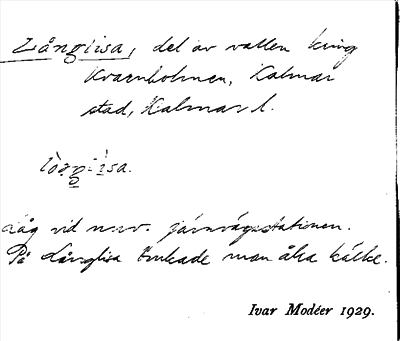 Långiisa, del av vallen kring
Kvarnholmen, Kalmar
stad, Kalmar l.
Låg vid nuv. järnvägsstationen.
På Långiisa brukade man åka kälke.
Ivar Modéer 1929.